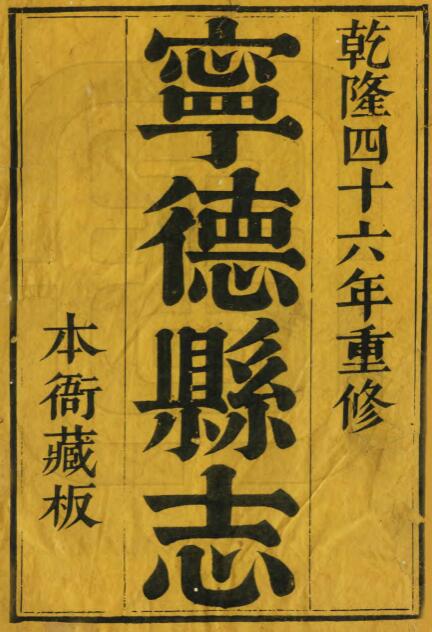 乾隆四十六年重修
寧德縣志
本衙藏板